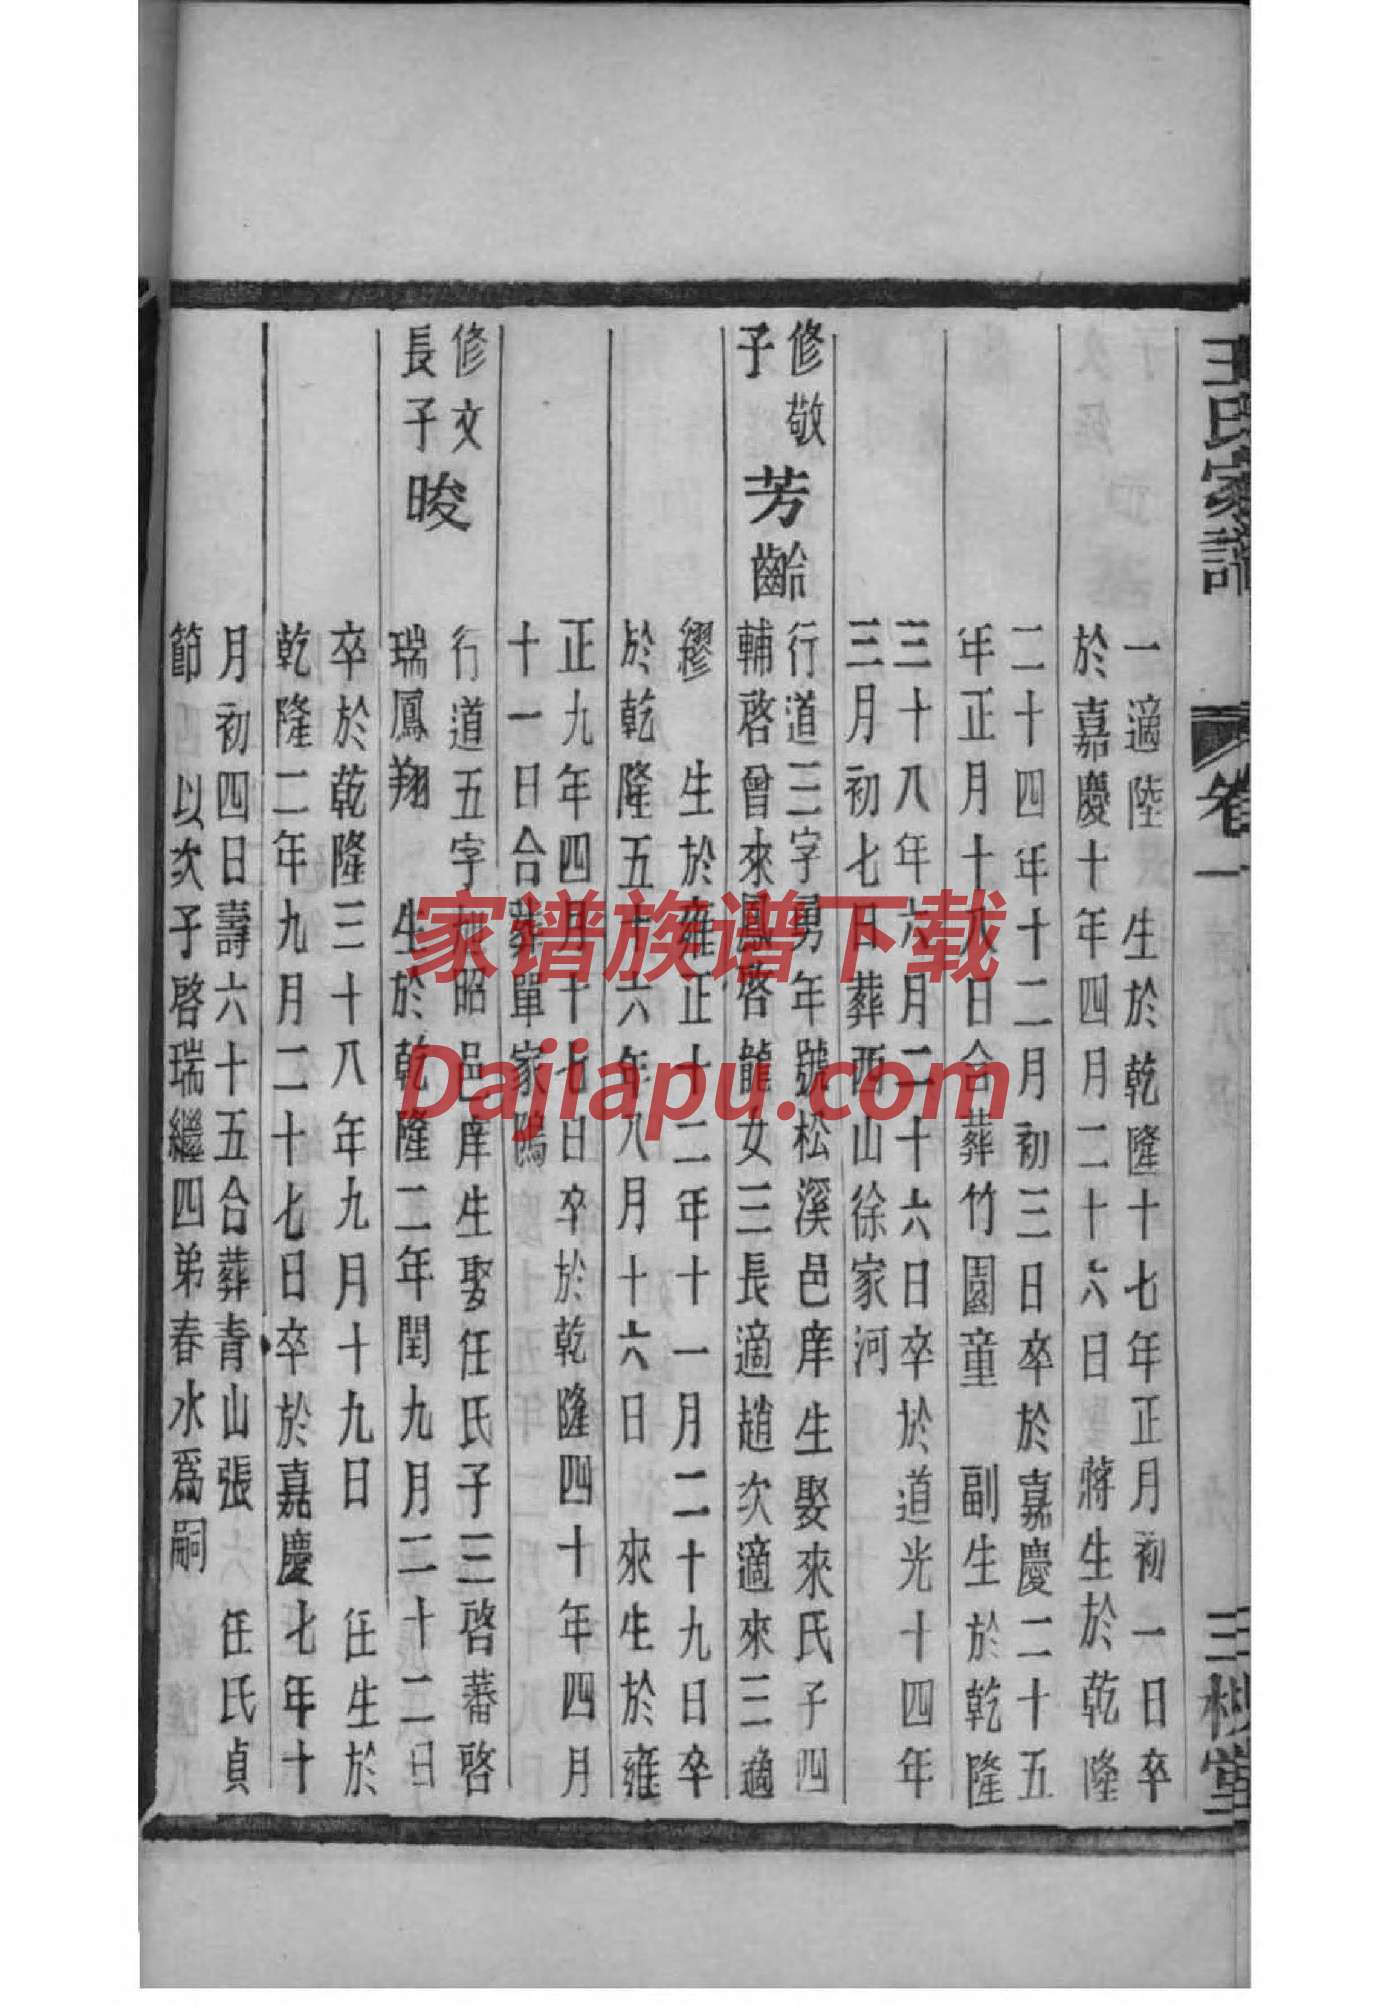 王氏家譜
卷一
三槐堂
一適陸 生於乾隆十七年正月初一日卒
於嘉慶十年四月二十六日 蔣生於乾隆
二十四年十二月初三日卒於嘉慶二十五
年正月十八日合葬竹園童 副生於乾隆
三十八年六月二十六日卒於道光十四年
三月初七日葬西山徐家河
修敬
子
芳齡
行道三字勇年號松溪邑庠生娶來氏子四
輔啓曾來鳳啓龍女三長適趙次適來三適
繆 生於雍正十二年十一月二十九日卒
於乾隆五十六年八月十六日 來生於雍
正九年四月十七日卒於乾隆四十年四月
十一日合葬單家鴿
修文
長子
晙
行道五字旭昭邑庠生娶任氏子三啓蕃啓
瑞鳳翔 生於乾隆二年閏九月二十二日
卒於乾隆三十八年九月十九日 任生於
乾隆二年九月二十七日卒於嘉慶七年十
月初四日壽六十五合葬青山張 任氏貞
節 以次子啓瑞繼四弟春水爲嗣
家谱族谱下载
Dajiapu.com